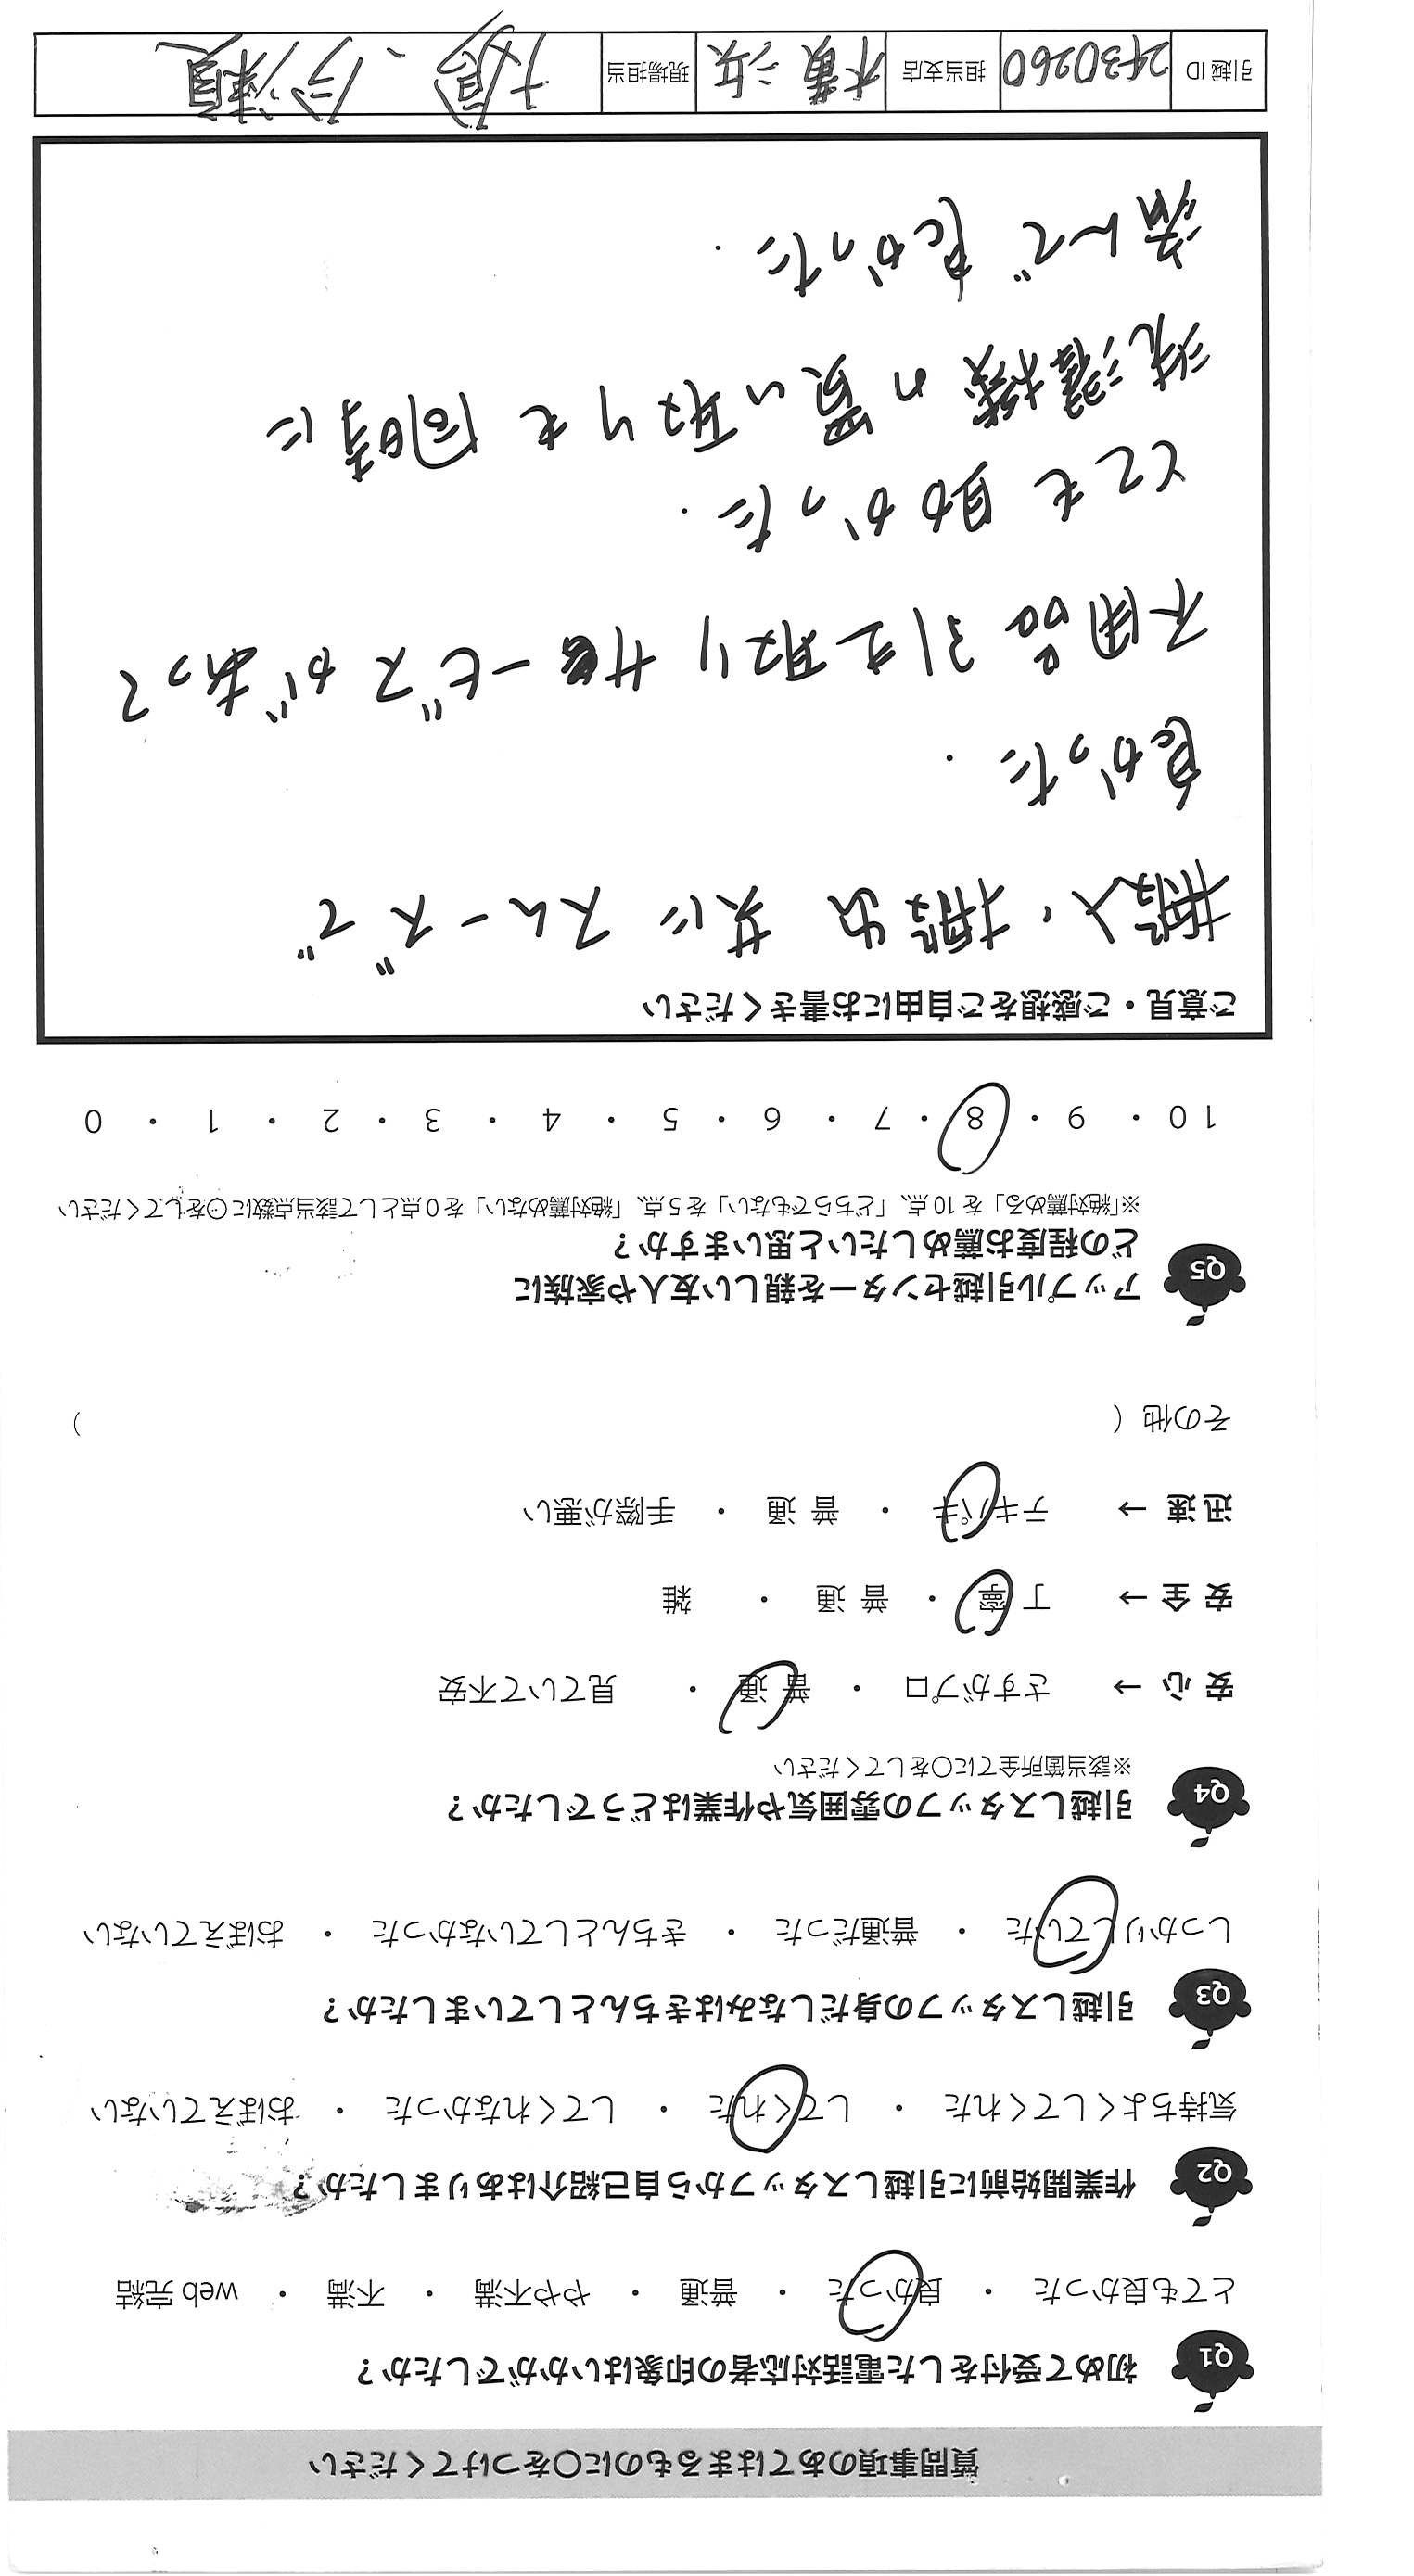 質問事項のあてはまるものに○をつけてください
Q1 初めて受付をした電話対応者の印象はいかがでしたか？
とても良かった ・ 良かった ・ 普通 ・ やや不満 ・ 不満 ・ web 完結
Q2 作業開始前に引越しスタッフから自己紹介はありましたか？
気持ちよくしてくれた ・ してくれた ・ してくれなかった ・ おぼえていない
Q3 引越しスタッフの身だしなみはきちんとしていましたか？
しっかりしていた ・ 普通だった ・ きちんとしていなかった ・ おぼえていない
Q4 引越しスタッフの雰囲気や作業はどうでしたか？
※該当箇所全てに○をしてください
安 心 → さすがプロ ・ 普 通 ・ 見ていて不安
安 全 → 丁 寧 ・ 普 通 ・ 雑
迅 速 → テキパキ ・ 普 通 ・ 手際が悪い
その他（ ）
Q5 アップル引越センターを親しい友人や家族に
どの程度お薦めしたいと思いますか？
※「絶対薦める」を 10 点、「どちらでもない」を 5 点、「絶対薦めない」を 0 点として該当点数に○をしてください
10 ・ 9 ・ 8 ・ 7 ・ 6 ・ 5 ・ 4 ・ 3 ・ 2 ・ 1 ・ 0
ご意見・ご感想をご自由にお書きください
搬入・搬出 共に スムーズで
良かった．
不用品 引き取り サービスがあって
とても 助かった．
洗濯機の買い取りも同時に
済んで 良かった．
引越 ID 2430260 担当支店 現場担当